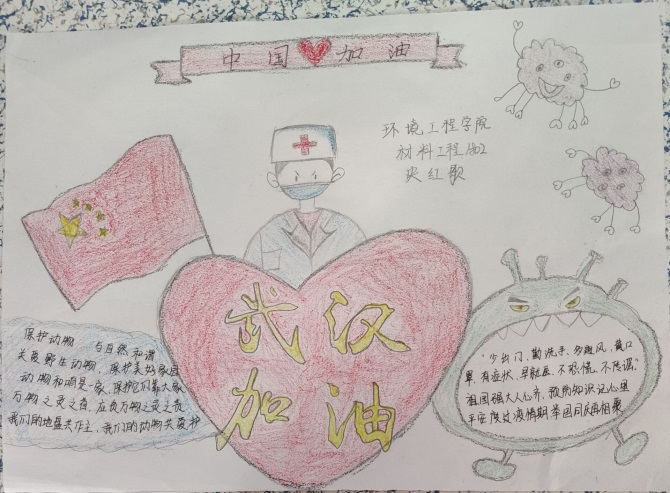 中国加油
环境工程学院
材料工程1802
红歌
武汉
加油
保护动物 与自然和谐
关爱野生动物,保护美好家园
动物和咱是一家,保护它们靠大家
万物之灵之长,应负万物之灵之责
我们的地盘共作主,我们的动物共爱护
"少出门、勤洗手、多通风、戴口
罩、有症状、早就医、不恐慌、不传谣"
祖国强大人心齐,预防知识记心里
平安度过疫情期举国同庆再相聚